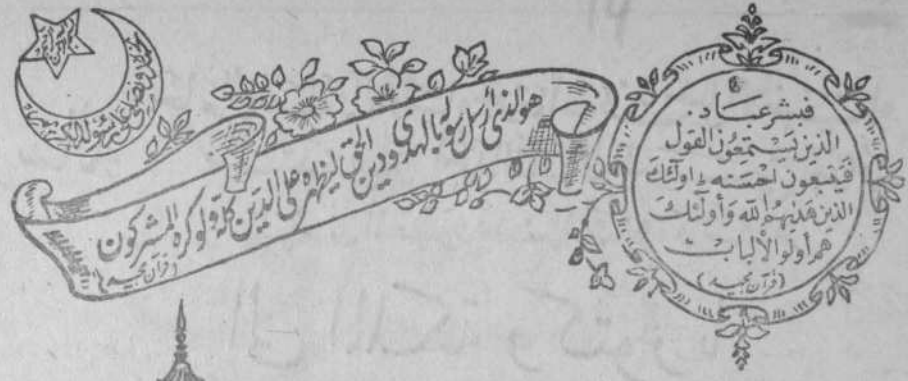 فبشر عباد
الذين يَسْتَمِعُون القول
فَيَتبعون احْسَنه اولٓئك
الذين هَدٰيهُم الله وَأُولٓئك
هم أُولو الألباب
(قرآن مجيد)
هو الذی أرسل رسوله بالهدی ودين الحق ليظهره علی الدين كله ولو كره المشركون
(قرآن مجيد)
نحمده ونصلی علی رسوله الكريم